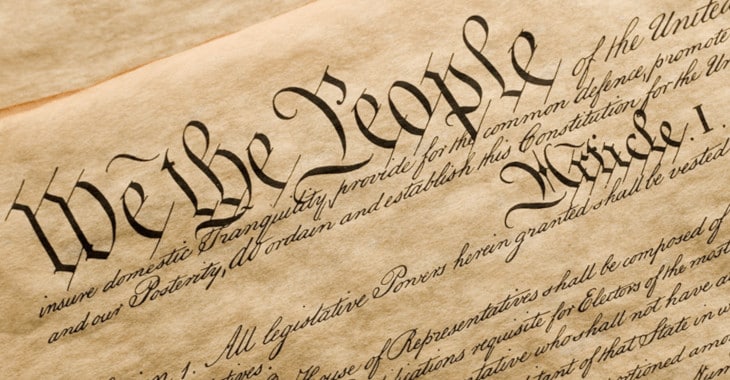 We the People of the United
insure domestic Tranquility, provide for the common defence, promote
and our Posterity, do ordain and establish this Constitution for the Un
Article. I.
1. All legislative Powers herein granted shall be vested
House of Representatives shall be composed of
ications requisite for Electors of the most
tative who shall not have a
tant of that State in w